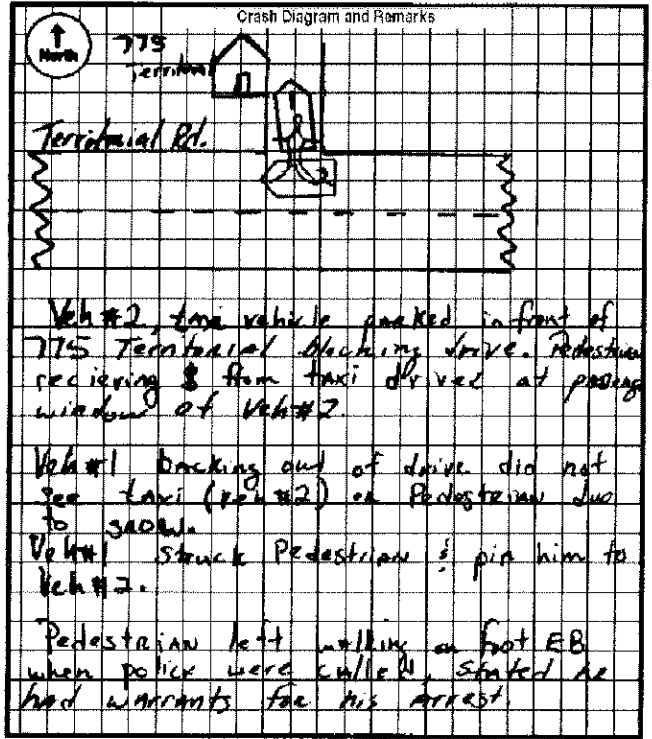 Crash Diagram and Remarks
North
775
Territorial
Territorial Rd.
1
2
Veh #2, taxi vehicle parked in front of
775 Territorial blocking drive. Pedestrian
recieving $ from taxi driver at passeng
window of Veh #2.
Veh #1 backing out of drive did not
see taxi (veh #2) or Pedestrian due
to snow.
Veh #1 struck Pedestrian & pin him to
Veh #2.
Pedestrian left walking on foot EB
when police were called, stated he
had warrants for his arrest.